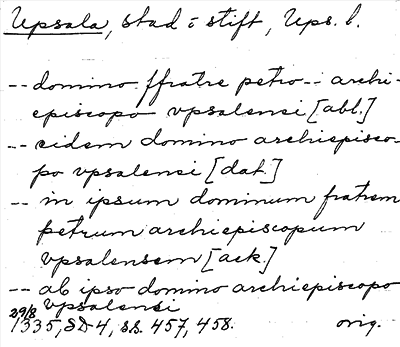 Upsala, stad o stift, Ups. l.
-- domino ffratre petro -- archi-
episcopo vpsalensi [abl.]
-- eidem domino archiepisco-
po vpsalensi [dat.]
-- in ipsum dominum fratrem
petrum archiepiscopum
vpsalensem [ack.]
-- ab ipso domino archiepiscopo
vpsalensi
29/8
1335, SD 4, ss. 457, 458. orig.